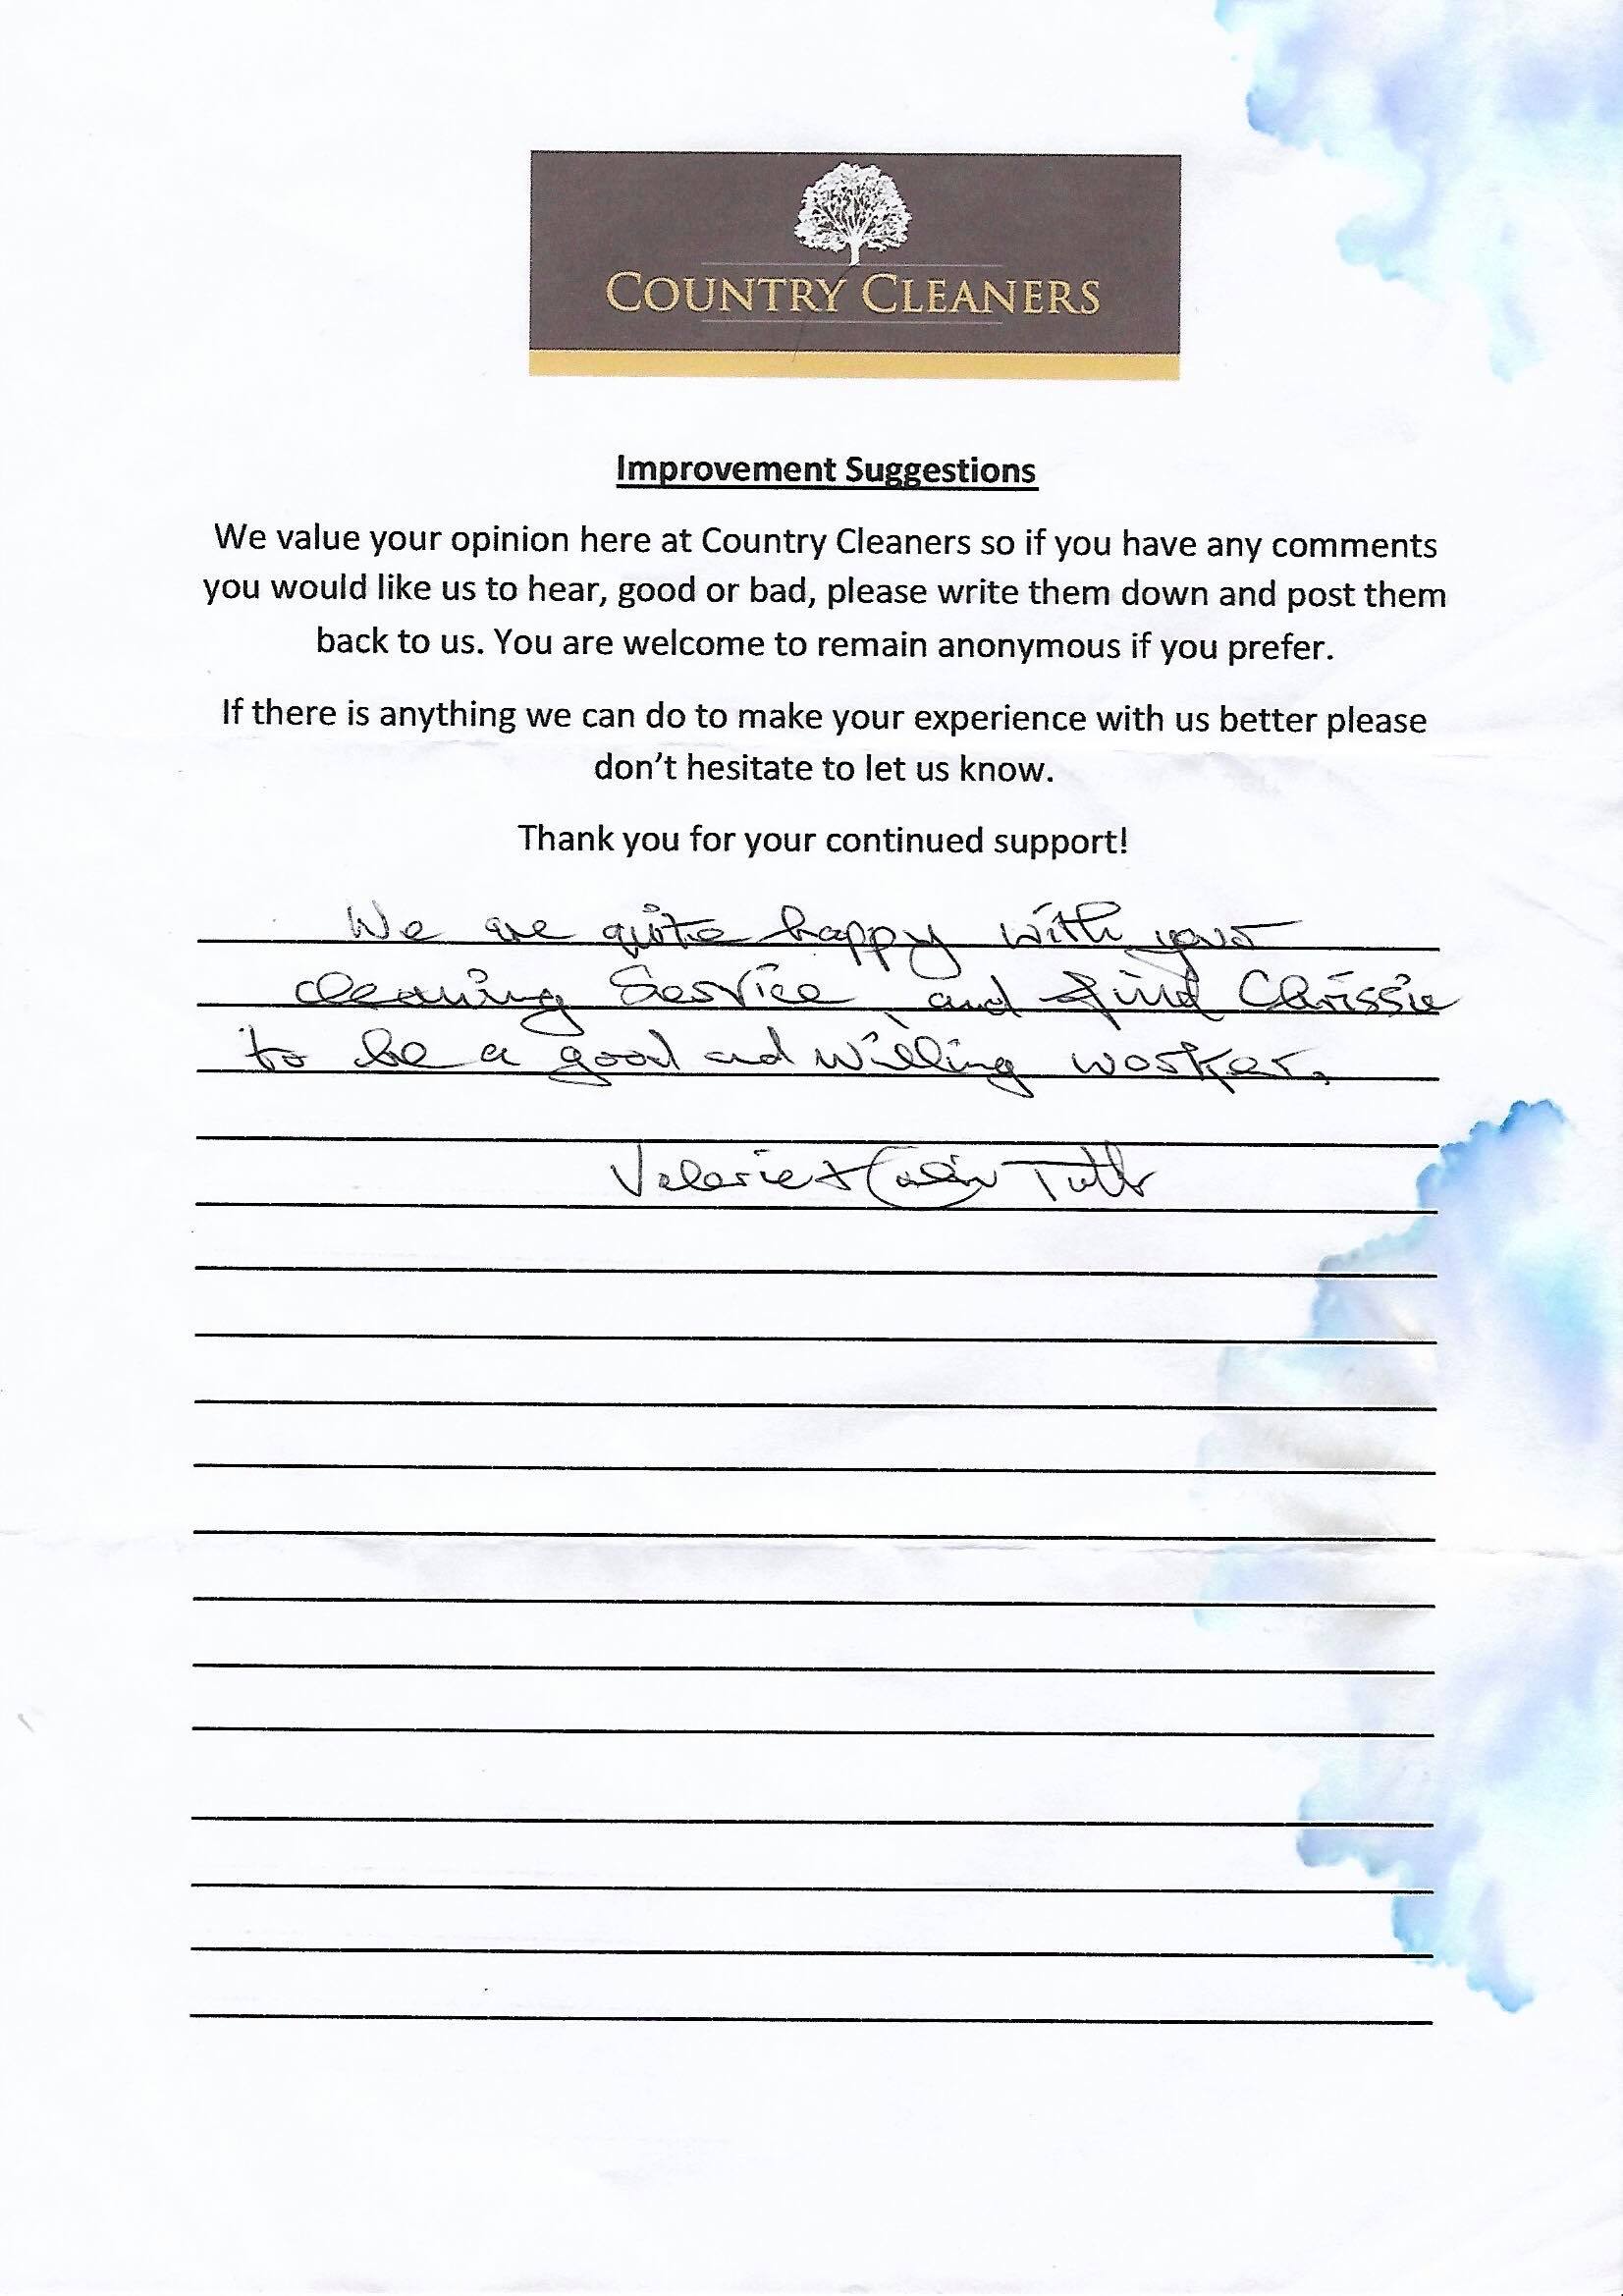 COUNTRY CLEANERS
Improvement Suggestions
We value your opinion here at Country Cleaners so if you have any comments
you would like us to hear, good or bad, please write them down and post them
back to us. You are welcome to remain anonymous if you prefer.
If there is anything we can do to make your experience with us better please
don't hesitate to let us know.
Thank you for your continued support!
We are quite happy with your
cleaning Service and find Chrissie
to be a good and willing worker.
Valerie + Colin